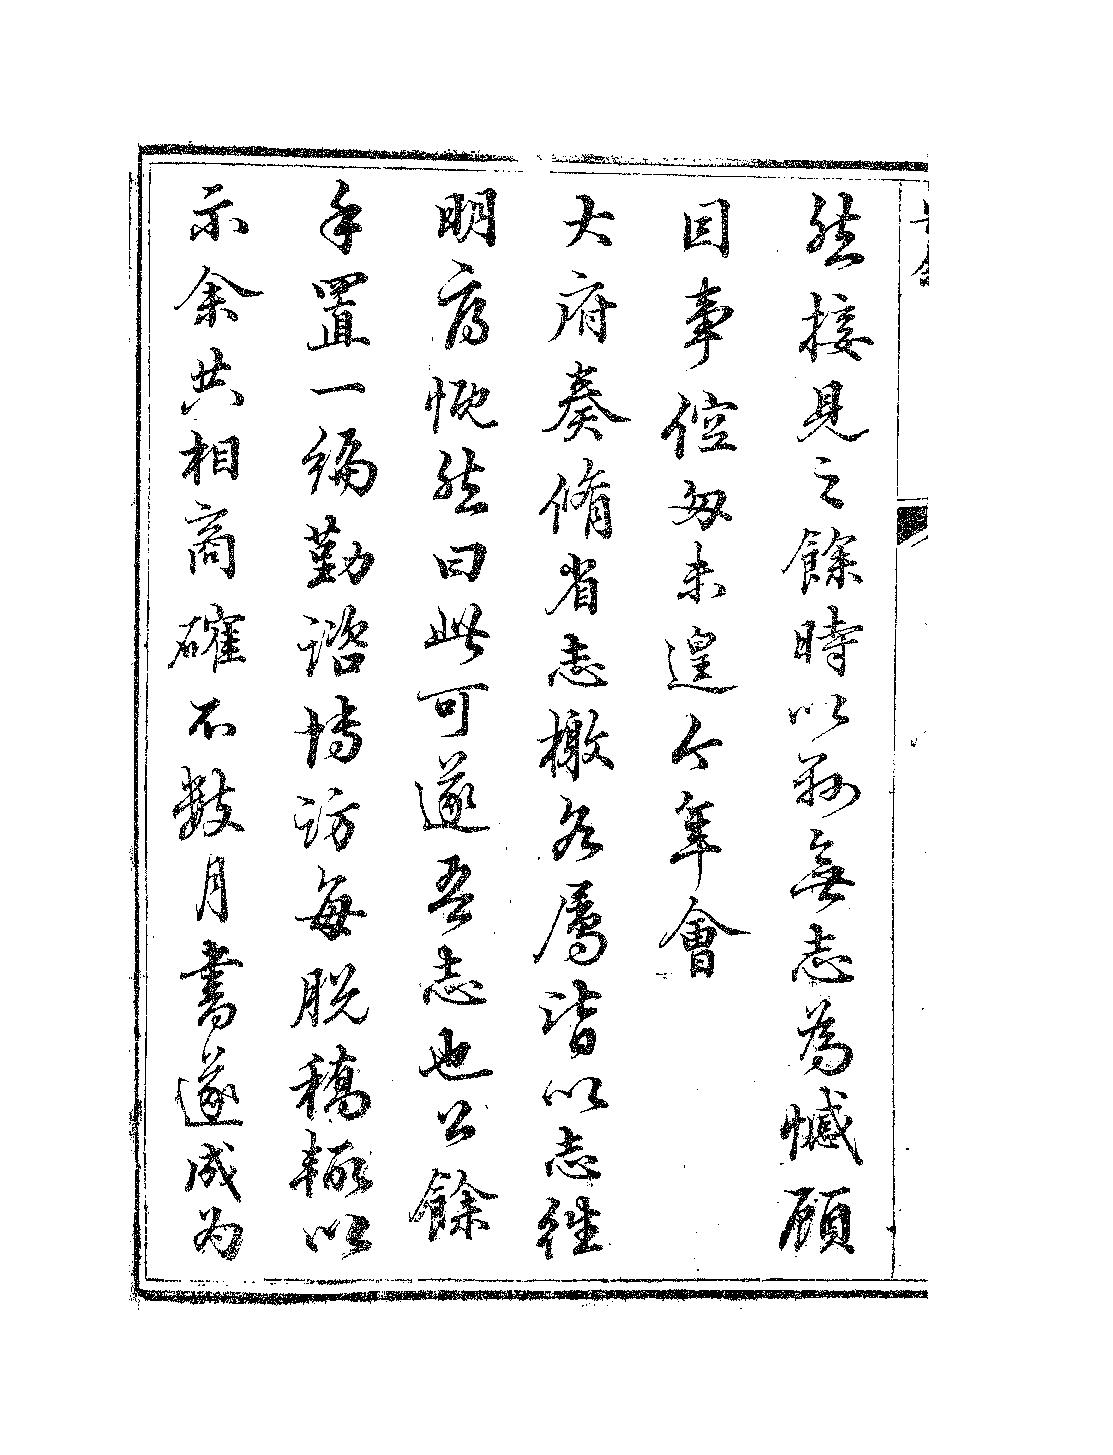 然接見之餘時以縣無志為憾顧
因事倥匆未遑今年會
大府奏脩省志檄各屬皆以志徃
明府慨然曰此可遂吾志也公餘
手置一編勤諮博訪每脱稿輙以
示余共相商確不數月書遂成为